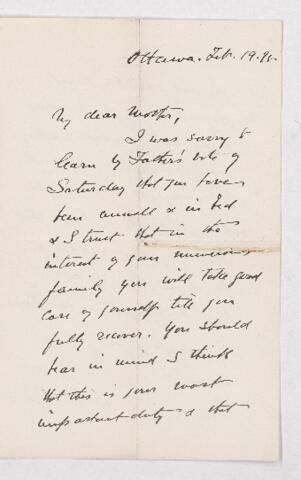 Ottawa. Feb. 19. 95.
My dear Mother,
I was sorry to
learn by Father's note of
Saturday that you have
been unwell & in bed
& I trust that in the
interest of your numerous
family you will take good
care of yourself till you
fully recover. You should
bear in mind I think
that this is your most
important duty & that